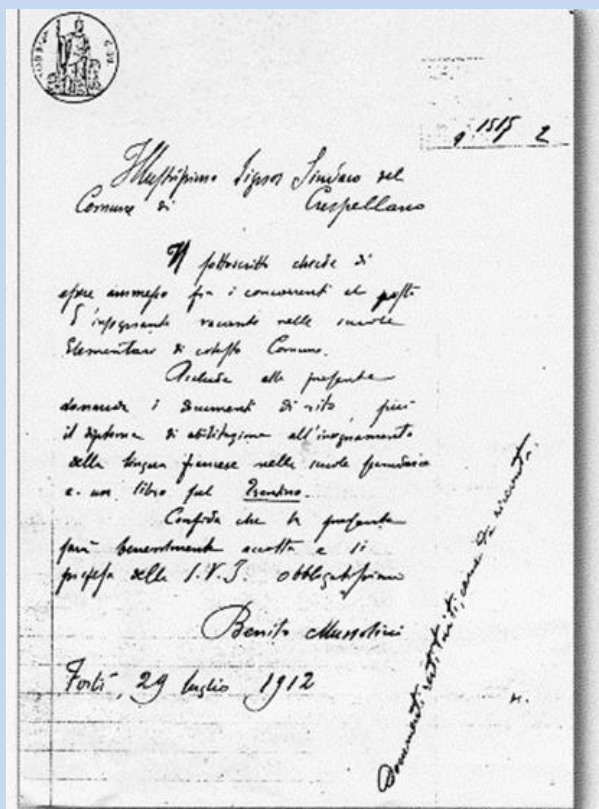 1515
Illustrissimo Signor Sindaco del
Comune di Crespellano
Il sottoscritto chiede di
essere ammesso fra i concorrenti al posto
d'insegnante vacante nelle scuole
Elementari di codesto Comune.
Acclude alla presente
domanda i documenti di rito, più
il diploma di abilitazione all'insegnamento
della lingua francese nelle scuole secondarie
e un libro sul Trentino.
Confida che la presente
sarà benevolmente accolta e si
professa della S.V.I. obbligatissimo
Benito Mussolini
Forlì, 29 luglio 1912
Documenti restituiti, come da ricevuta.